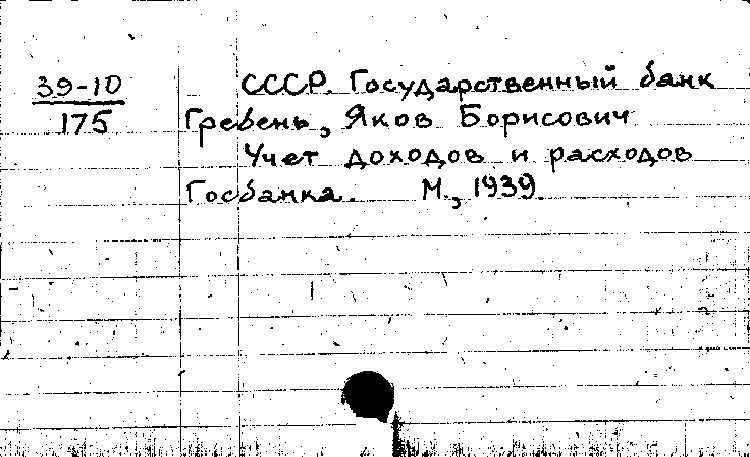 39-10 СССР. Государственный банк
175 Гребень, Яков Борисович
Учет доходов и расходов
Госбанка. М., 1939.